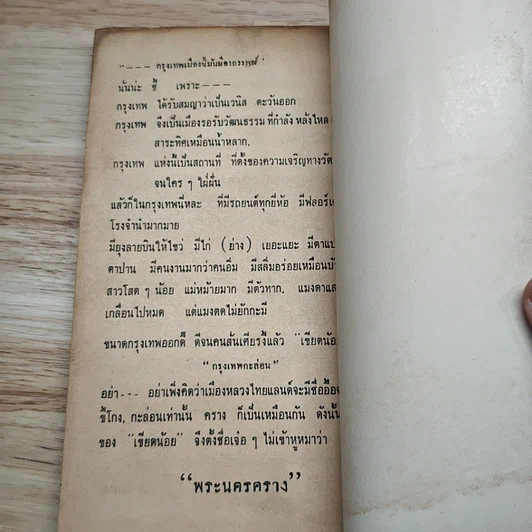 “--- กรุงเทพเมืองนี้มันมีอาถรรพณ์”
นั่นน่ะ ซี เพราะ---
กรุงเทพ ได้รับสมญาว่าเป็นเวนิส ตะวันออก
กรุงเทพ จึงเป็นเมืองรอรับวัฒนธรรม ที่กำลัง หลั่งไหล
สาระทิศเหมือนน้ำหลาก.
กรุงเทพ แห่งนี้เป็นสถานที่ ที่ตั้งของความเจริญทาง
จนใคร ๆ ใฝ่ฝัน
แล้วก็ในกรุงเทพนี่หละ ที่มีรถยนต์ทุกยี่ห้อ มี
โรงจำนำมากมาย
มียุงลายบินให้ไขว่ มีไก่ (ย่าง) เยอะแยะ มี
ตาปาน มีคนงานมากว่าคนอิ่ม มีสลิ่มอร่อยเหมือน
สาวโสด ๆ น้อย แม่หม้ายมาก มีตัวทาก, แมงดา
เกลื่อนไปหมด แต่แมงตดไม่ยักกะมี
ขนาดกรุงเทพออกดี ดีจนคนสันเศียรรั้งแล้ว “เขียดน้อย
“กรุงเทพกะล่อน”
อย่า--- อย่าเพิ่งคิดว่าเมืองหลวงไทยแลนด์จะมีชื่อ
ขี้โกง, กะล่อนเท่านั้น คราง ก็เป็นเหมือนกัน ดังนั้น
ของ “เขียดน้อย” จึงตั้งชื่อเจ๋อ ๆ ไม่เข้าหูหมาว่า
“พระนครคราง”